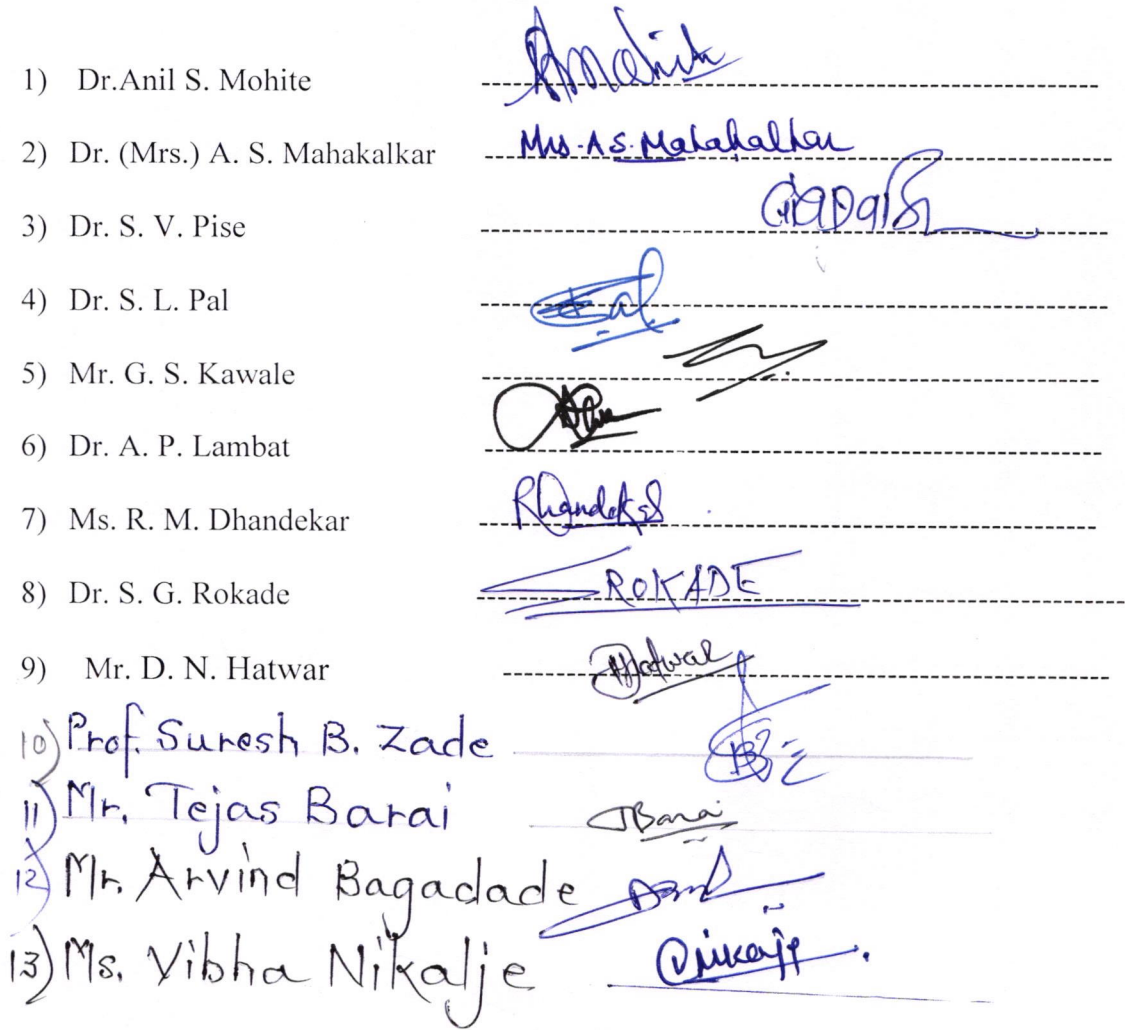 1) Dr.Anil S. Mohite AMohite
2) Dr. (Mrs.) A. S. Mahakalkar Mrs. A S. Mahakalkar
3) Dr. S. V. Pise
4) Dr. S. L. Pal
5) Mr. G. S. Kawale
6) Dr. A. P. Lambat
7) Ms. R. M. Dhandekar RDhandekar
8) Dr. S. G. Rokade SROKADE
9) Mr. D. N. Hatwar Hatwar
10) Prof. Suresh B. Zade
11) Mr. Tejas Barai TBarai
12) Mr. Arvind Bagadade
13) Ms. Vibha Nikalje VNikalje